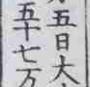 五日大
五十七万